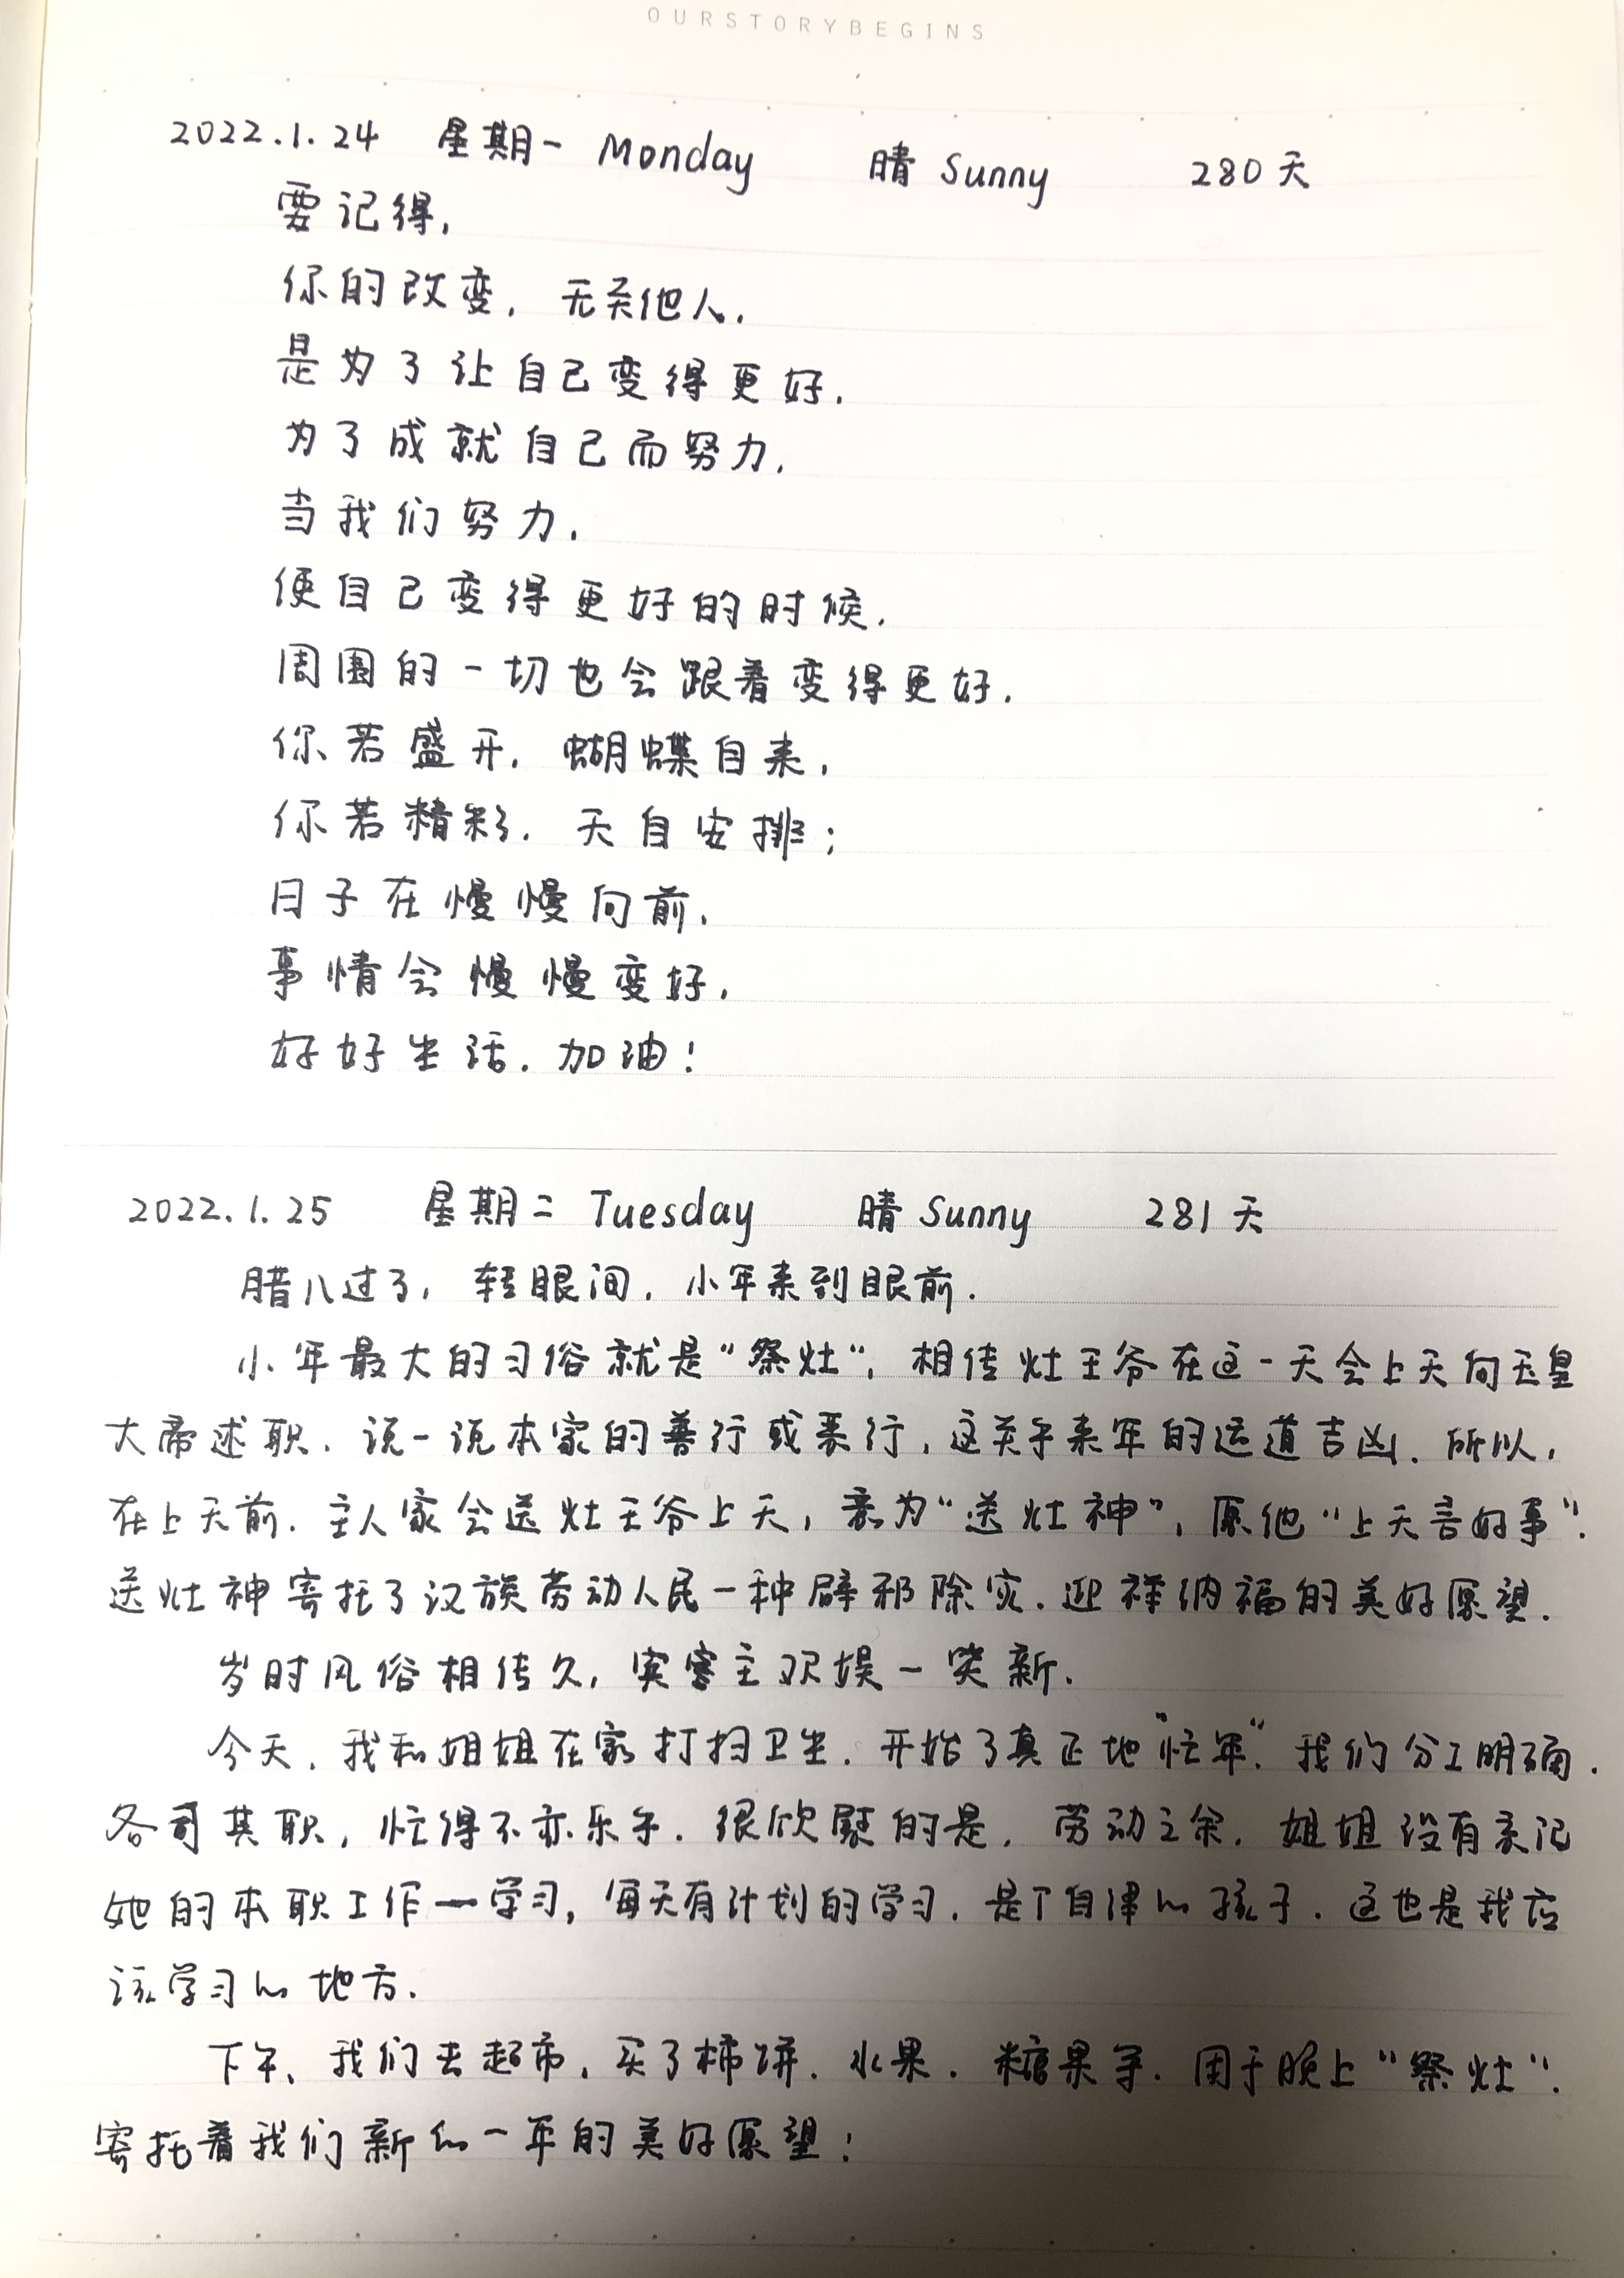 OURSTORYBEGINS
2022.1.24 星期一 Monday 晴 Sunny 280天
要记得,
你的改变,无关他人.
是为了让自己变得更好.
为了成就自己而努力.
当我们努力.
使自己变得更好的时候.
周围的一切也会跟着变得更好.
你若盛开,蝴蝶自来,
你若精彩,天自安排;
日子在慢慢向前.
事情会慢慢变好.
好好生活.加油!
2022.1.25 星期二 Tuesday 晴 Sunny 281天
腊八过了,转眼间,小年来到眼前.
小年最大的习俗就是“祭灶”,相传灶王爷在这一天会上天向玉皇
大帝述职.说一说本家的善行或恶行,这关乎来年的运道吉凶.所以,
在上天前.主人家会送灶王爷上天,意为“送灶神”,愿他“上天言好事”.
送灶神寄托了汉族劳动人民一种辟邪除灾.迎祥纳福的美好愿望.
岁时风俗相传久,宾主欢娱一笑新.
今天,我和姐姐在家打扫卫生.开始了真正地“忙年”.我们分工明确.
各司其职,忙得不亦乐乎.很欣慰的是,劳动之余,姐姐没有忘记
她的本职工作—学习,每天有计划的学习.是个自律的孩子.这也是我应
该学习的地方.
下午,我们去超市,买了柿饼.水果.糖果等.用于晚上“祭灶”.
寄托着我们新的一年的美好愿望!